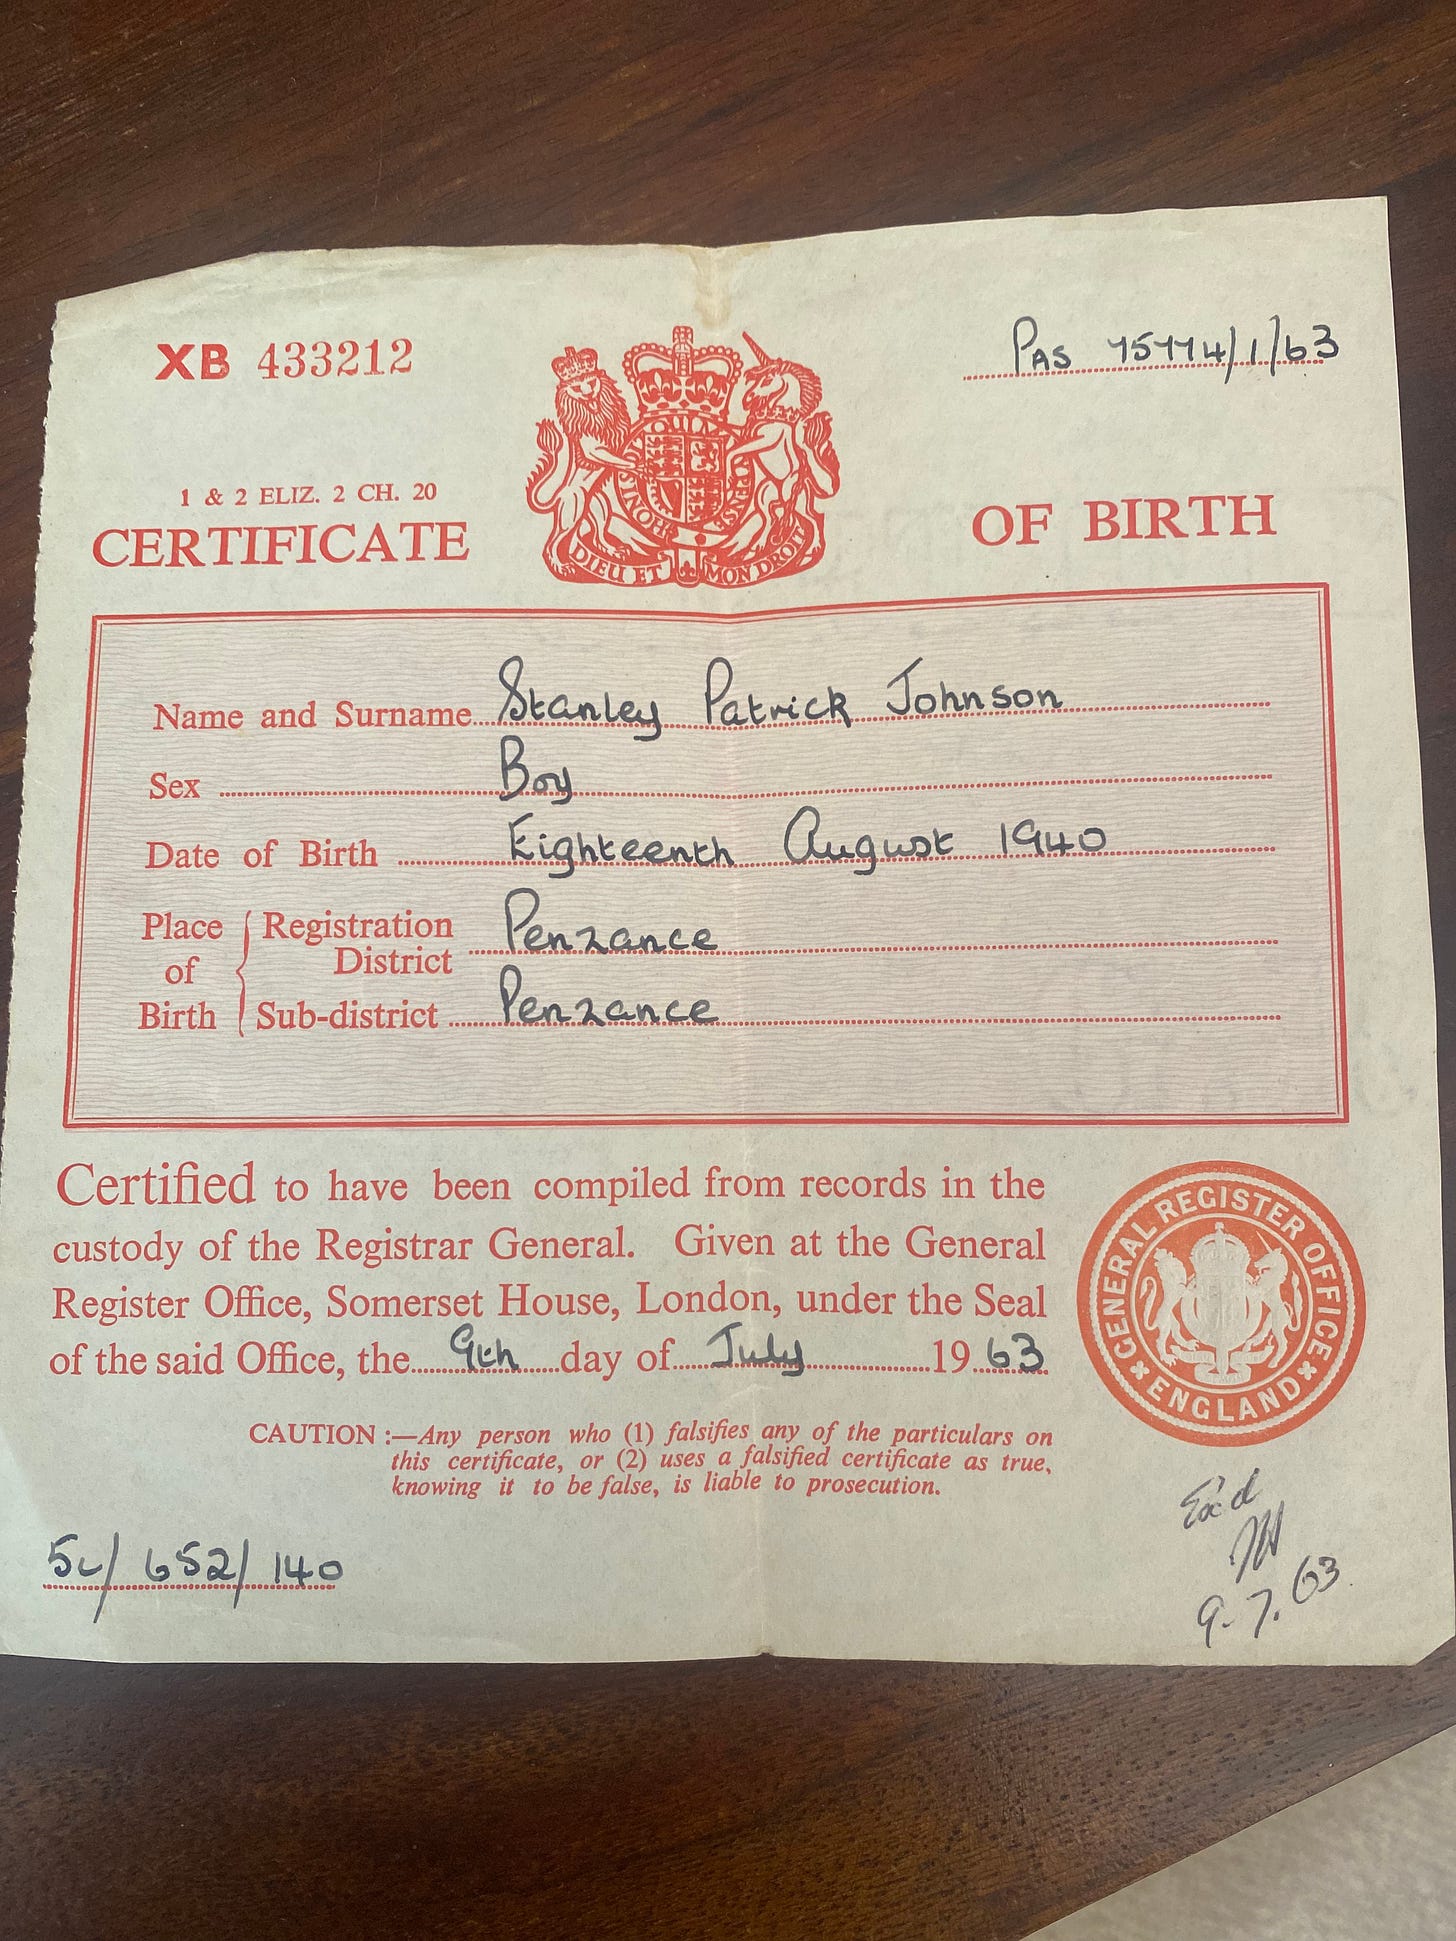 XB 433212
PAS 75774/1/63
1 & 2 ELIZ. 2 CH. 20
CERTIFICATE OF BIRTH
DIEU ET MON DROIT
Name and Surname Stanley Patrick Johnson
Sex Boy
Date of Birth Eighteenth August 1940
Place of Birth { Registration District Penzance
Sub-district Penzance
Certified to have been compiled from records in the
custody of the Registrar General. Given at the General
Register Office, Somerset House, London, under the Seal
of the said Office, the 9th day of July 1963
GENERAL REGISTER OFFICE
ENGLAND
CAUTION :—Any person who (1) falsifies any of the particulars on
this certificate, or (2) uses a falsified certificate as true,
knowing it to be false, is liable to prosecution.
Ex'd
9.7.63
5c/652/140